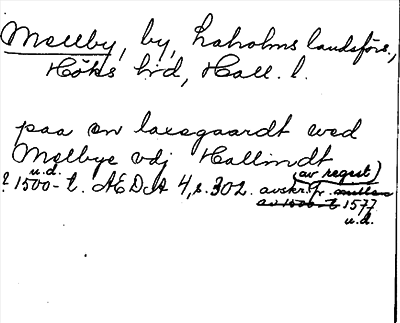 Mellby, by, Laholms landsförs.,
Höks hrd, Hall. l.
paa en laxegaardt wed
Melbye vdj Hallindt
u.d. (av regest)
? 1500-t. ÆDA 4, s. 302. avskr. fr. mitten
av 1500-t 1577
u.d.